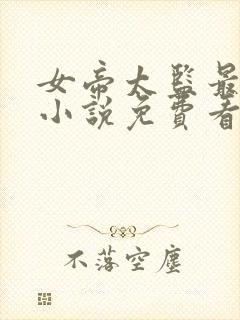 女帝太監最
小說免費看
不落空塵